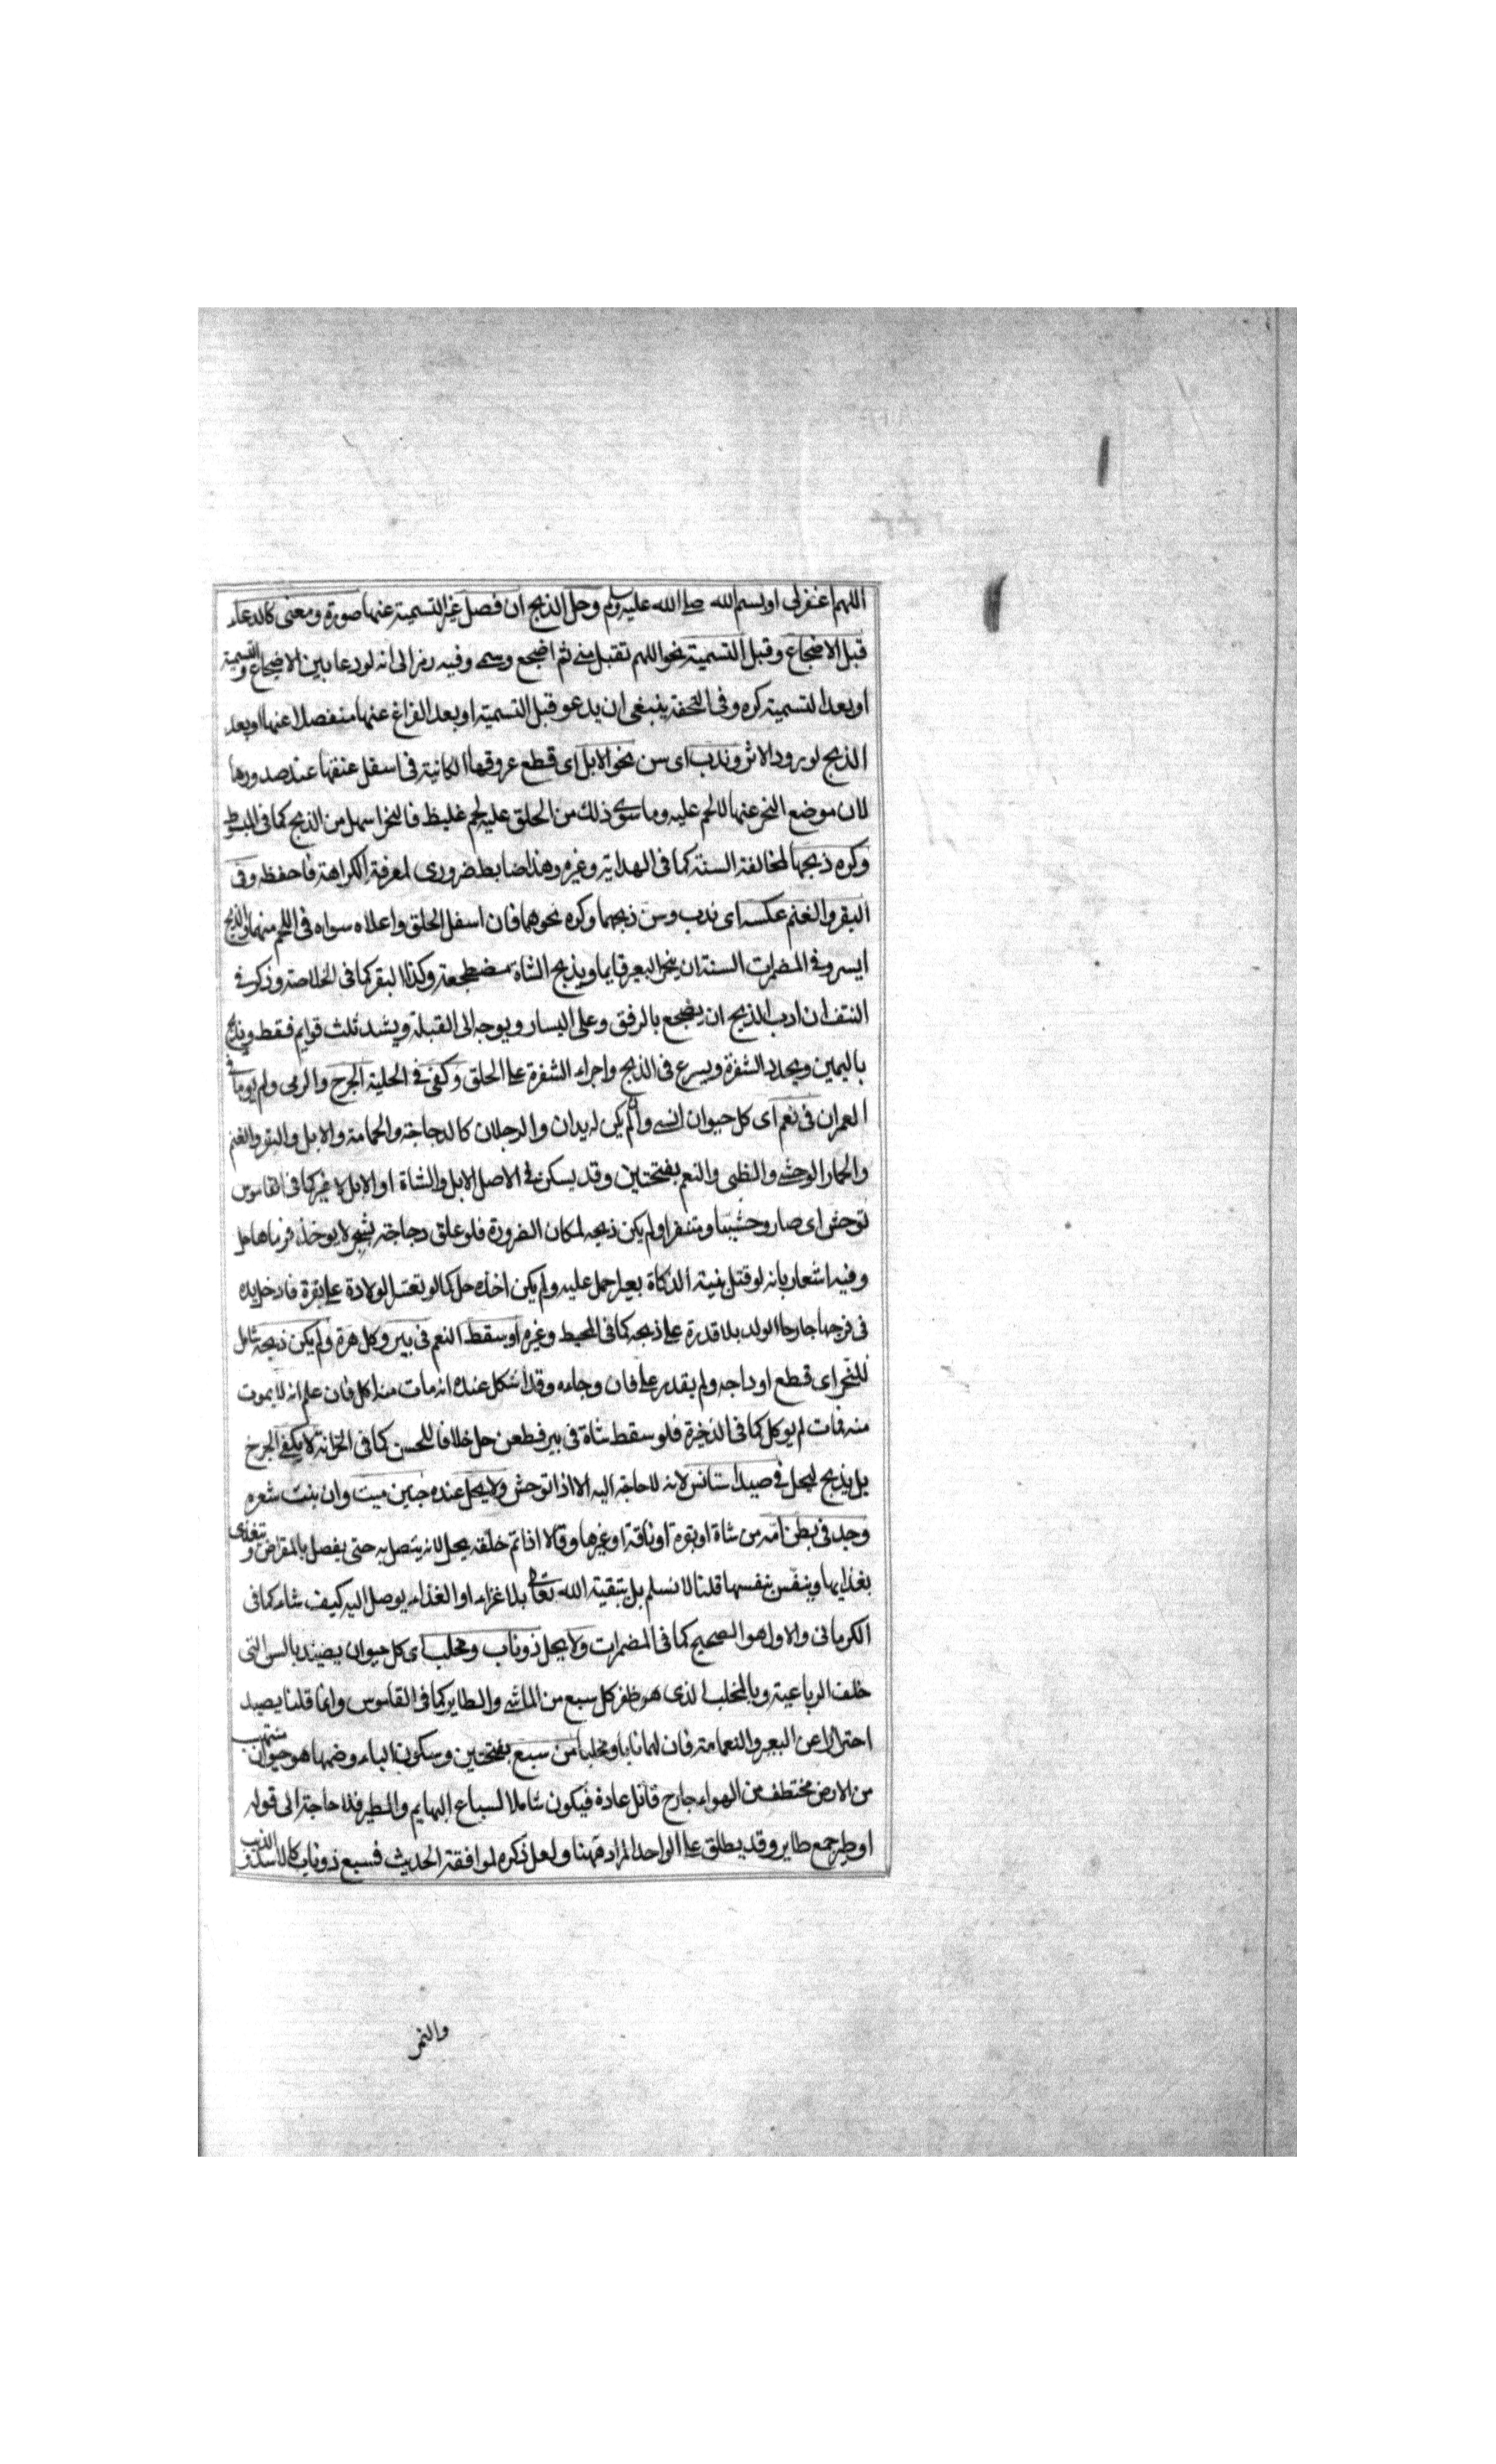 اللهم اغفرلى او بسم الله صلى الله عليه وسلم وحل الذبح ان فصل غير التسمية عنها صورة ومعنى كالدعاء
قبل الاضجاع وقبل التسمية نحو اللهم تقبل منى ثم اضجع وسمى وفيه رمز الى انه لو دعا بين الاضجاع والتسمية
او بعد التسمية كره وفى التحفة ينبغى ان يدعو قبل التسمية او بعد الفراغ عنها منفصلا عنها او بعد
الذبح لورود الاثر وندب اى سن نحر الابل اى قطع عروقها الكائنة فى اسفل عنقها عند صدورها
لان موضع النحر عنها لا لحم عليه وما سوى ذلك من الحلق عليه لحم غليظ فالنحر اسهل من الذبح كما فى المبسوط
وكره ذبحها لمخالفة السنة كما فى الهداية وغيره وهذا ضابط ضرورى لمعرفة الكراهة فاحفظه وفى
البقر والغنم عكسه اى ندب وسن ذبحهما وكره نحرهما فان اسفل الحلق واعلاه سواء فى اللحم منهما والذبح
ايسر وفى المضمرات السنة ان ينحر البعير قايما ويذبح الشاة مضطجعة وكذا البقر كما فى الخلاصة وذكر فى
النتف ان ادب الذبح ان يضجع بالرفق وعلى اليسار ويوجه الى القبلة ويشد ثلث قوايم فقط ويذبح
باليمين ويحدد الشفرة ويسرع فى الذبح واجراء الشفرة على الحلق وكفى فى الحلية الجرح والرمى ولم يوما فى
العمران فى نعم اى كل حيوان انسى وان لم يكن له يدان والرجلان كالدجاجة والحمامة والابل والبقر والغنم
والحمار الوحشى والظبى والنعم بفتحتين وقد يسكن فى الاصل الابل والشاة او الابل لا غير كما فى القاموس
توحش اى صار وحشيا ومتنفرا ولم يكن ذبحه لمكان الضرورة فلو علق دجاجة بشجر لا يوخذ فرماها حل
وفيه اشعار بانه لو قتل بنية الذكاة بعيرا حمل عليه ولم يكن اخذه حل كما لو تعسر الولادة على بقرة فادخل يده
فى فرجها جارحا الولد بلا قدرة على ذبحه كما فى المحيط وغيره او سقط النعم فى بير وكل هرة ولم يكن ذبحه شامل
للنحر اى قطع اوداجه ولم يقدر على فان وجاءه وقد اشكل عنده انه مات منه اكل فان علم انه لا يموت
منه فمات لم يوكل كما فى الذخيرة فلو سقط شاة فى بير فطعن حل خلافا للحسن كما فى الخزانة لا يكفى الجرح
بل يذبح ليحل فى صيد استانس لانه لا حاجة اليه الا اذا توحش ولا يحل عنده جنين ميت وان بنت شعره
وجد فى بطن امه من شاة او بقرة او ناقة او غيرها وقالا اذا تم خلقه يحل لانه يتصل به حتى يفصل بالمقراض ويتغذى
بغذايها ويتنفس بنفسها قلنا لا نسلم بل بتبقية الله تعالى بلا غذاء او الغذاء يوصل اليه كيف شاء كما فى
الكرمانى والاول هو الصحيح كما فى المضمرات ولا يحل ذو ناب ومخلب اى كل حيوان يصيد بالسن التى
خلف الرباعية وبالمخلب الذى هو ظفر كل سبع من الماشى والطاير كما فى القاموس وانما قلنا يصيد
احترازا عن البعير والنعامة فان لهما نابا ومخلبا من سبع بفتحتين وسكون الباء وضمها هو حيوان منتهب
من الارض مختطف من الهواء جارح قاتل عادة فيكون شاملا لسباع البهايم والطير فلا حاجة الى قوله
او طير جمع طاير وقد يطلق على الواحد المراد ههنا ولعل ذكره لموافقة الحديث فسبع ذو ناب كالاسد والذئب
والنمر